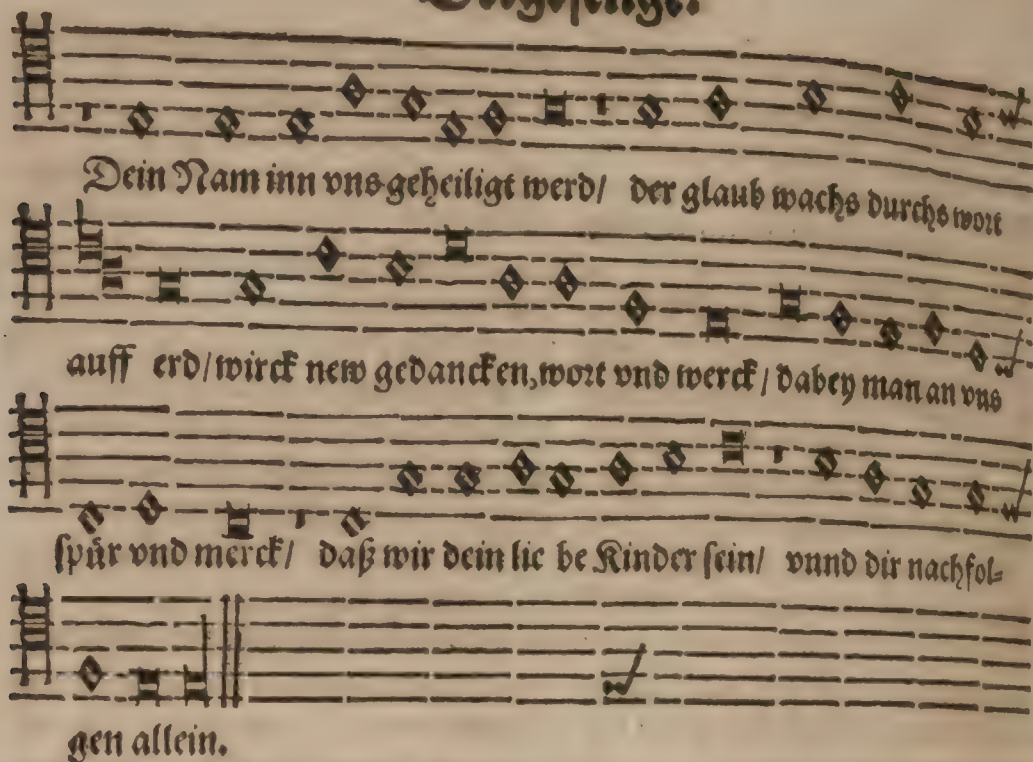 Dein Nam inn vns geheiligt werd/ der glaub wachs durchs wort
auff erd/ wirck new gedancken, wort vnd werck/ dabey man an vns
spür vnd merck/ daß wir dein lie be Kinder sein/ vnnd dir nachfol-
gen allein.